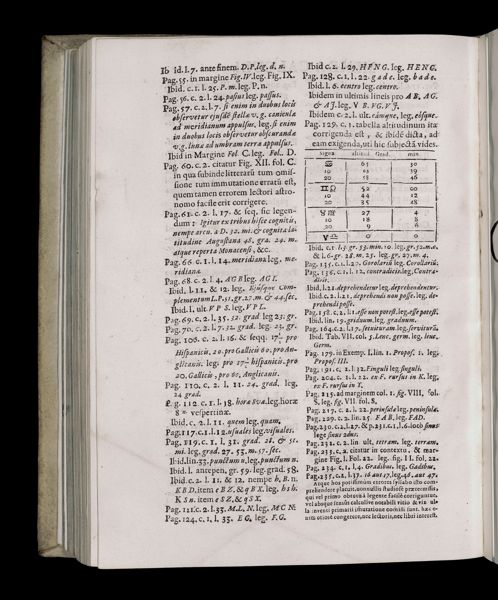 Ib id.l.7. ante finem. D.P.leg. d. n.
Pag.55. in margine Fig.IV. leg. Fig. IX.
Ibid. c. 1. l. 25. P. m. leg. P. n.
Pag. 56. c. 2. l. 24. pasus leg. passus.
Pag. 57. c. 2. l. 7. si enim in duobus locis
observetur ejusdē stella v, g, canicula
ad meridianum appulsus, leg. si enim
in duobus locis observetur obscuranda
v. g. luna ad umbram terra appulsus.
Ibid in Margine Fol. C. leg. Fol.. D.
Pag. 60. c. 2. citatur Fig. XII. fol. C.
in qua subinde litterarū tum omis-
sione tum immutatione erratū est,
quem tamen errorem lectori astro-
nomo facile erit corrigere.
Pag. 61. c. 2. l. 17. & seq. sic legen-
dum: Igitur ex tribus hisce cognitis,
nempe arcu. a D. 32. mi. & cognita la-
titudine Augustana 48. gra. 24. m.
atque reperta Monatensi, &c.
Pag. 66. c. 1. l. 14. meridiana leg. me-
ridiana
Pag. 68. c. 2. l. 4. AGB leg. AGI.
Ibid. l. 11. & 12. leg. Ejusque Com-
plementum L.P. 51. gr. 27. m. & 44. sec.
Ibid. l. ult. VPS. leg. VPL.
Pag. 69. c. 2. l. 35. 32. grad leg 23. gr.
Pag. 70. c. 2. l. 7. 32. grad. leg. 23. gr.
Pag. 106. c. 2. l. 16. & seqq. 17- pro
Hispanicis. 20. pro Gallicis 60. pro An-
glicanis. leg. pro 17- hispanicis. pro
20. Gallicis, pro 60. Anglicanis.
Pag. 110. c. 2. l. 11. 24. grad. leg.
24 grad.
P. g. 112. c. 1. l. 18. horæ leg. horæ
8= vespertinæ.
Ibid. c. 2. l. 11. quem leg. quam.
Pag. 117. c. 1. l. 12. usuales leg. visuales.
Pag. 119. c. 1. l. 31. grad. 28. & 51.
mi. leg. grad. 27. 53. m. 57. sec.
Ibid. lin. 33. punctum u, leg. punctum n.
Ibid. l. antepen. gr. 59. leg. grad. 58.
Ibid. c. 2. l. 11. & 12. nempe h, B. n.
KBD. item e BZ, & q BX. leg. h s h.
KS n. item e SZ, & q SX.
Pag. 121. c. 2. l. 33. M.L.N. leg. MC N.
Pag. 124. c. 1. l. 35. EG, leg. F.G.
Ibid c. 2. l. 29. HVNG. leg. HENG.
Pag. 128. c. 1. l. 22. gade. leg. bade.
Ibid. l. 6. centro leg. centro.
Ibidem in ultimis lineis pro AB, AG.
& AJ. leg. VB. VG. VJ.
Ibidem c. 2. l. ult. eámque, leg, eósque.
Pag. 129. c. 1. tabella altitudinum ita
corrigenda est, & ibidē dicta, ad
eam exigenda, uti hic subjectā vides.
Signa altitud. Grad. min.
♋ 65 30
10 65 39
20 58 46
♊♌ 52 00
10 44 12
20 35 48
♉♍ 27 4
10 18 8
20 9 6
♈♎ 0 0
Ibid. c. 1 l. 3. gr. 53. min. 10. leg. gr. 52. m. 0.
& l. 6. gr. 28. m. 25. leg. gr. 27. m. 4.
Pag. 135. c. 1. l. 20. Gorolarii leg. Corollarii.
Pag. 136. c. 1. l. 12. contradicis. leg. Contra-
dicit.
Ibid. l. 21. deprehendetur leg. deprehendentur.
Ibid. c. 2. l. 21. deprehendi non posse. leg. de-
prehendi posse.
Pag. 158. c. 2. l. 1. esse non potest. leg. esse potest.
Ibid. lin. 19. griduum. leg. graduum.
Pag. 164. c. 2. l. 17. servituram. leg. servitura.
Ibid. Tab. VII. col. 5. Lenc. germ. leg. leuc.
Germ.
Pag. 179. in Exemp. I. lin. 1. Propos. 1. leg.
Propos. III.
Pag. 191. c. 1. l. 32. Finguli leg. singuli.
Pag. 204. c. 1. l. 22. ex F. rursus in K. leg.
ex F. rursus in Y.
Pag. 215. ad marginem col. 1. fig. VIII, fol.
S, leg. fig. VII. fol. S.
Pag. 217. c. 2. l. 22. perinsulæ leg. peninsulæ.
Pag. 229. c. 2. lin. 25. FAB, leg. FAD.
Pag. 230. c. 2. l. 27. & p. 231. c. 1. l. 6. loco sinus
lege sinus 2dus.
Pag. 232. c. 2. lin ult. tetram. leg. terram.
Pag. 233. c. 2. citatur in contextu, & mar-
gine Fig. I. Fol. 22. leg. fig. II. fol. 22.
Pag. 234. c. 1. l. 4. Gradibus. leg. Gadibus.
Pag. 235. c. 2. l. 37. 16 aut 17. leg. 46. aut 47.
Atque hos potissimum errores syllabo isto com-
prehendere placuit, nonnullis studiosè prætermissis,
qui vel primo obtutu à legente facilè corriguntur,
vel absque sensus calculive notabili vitio & vis ul-
la inventi primarii immutatione commissi sunt. hæc e-
nim otiosè congerere, nec lectoris, nec libri interest.